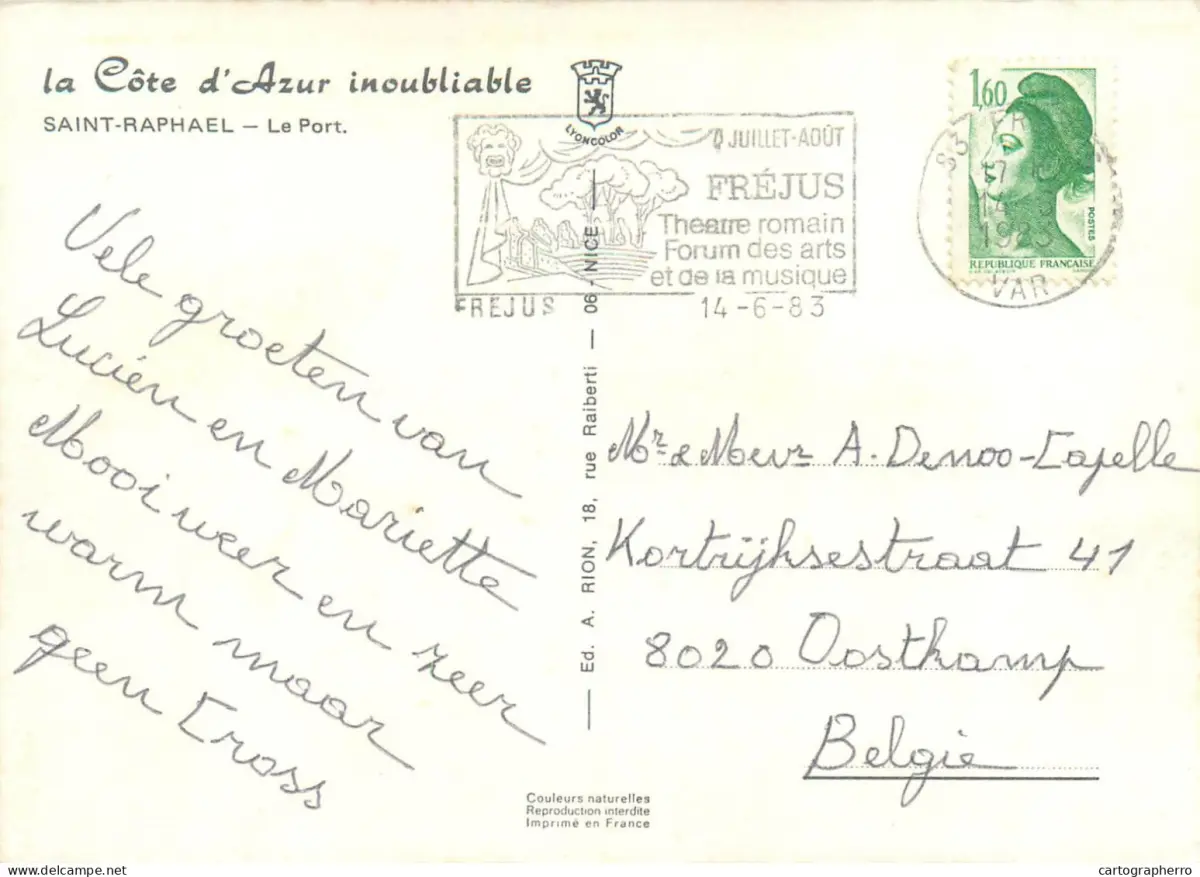 la Côte d'Azur inoubliable
SAINT-RAPHAEL — Le Port.
LYONCOLOR
JUILLET-AOÛT
FRÉJUS
Theatre romain
Forum des arts
et de la musique
FREJUS
14-6-83
1,60
POSTES
REPUBLIQUE FRANCAISE
83 FR
17
14
1983
VAR
Vele groeten van
Lucien en Mariette
Mooi weer en zeer
warm maar
geen Cross
Ed. A. RION, 18, rue Raiberti — 06 - NICE
Mr & Mevr A. Denoo-Capelle
Kortrijksestraat 41
8020 Oostkamp
Belgie
Couleurs naturelles
Reproduction interdite
Imprimé en France
cartographerro